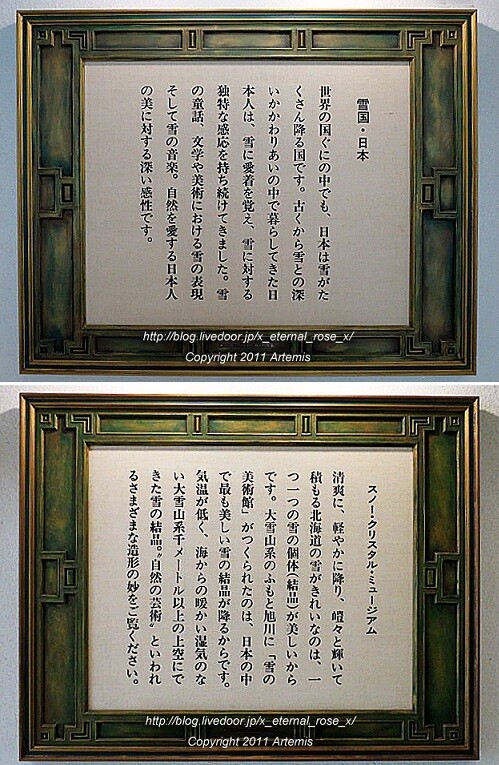 雪国・日本
世界の国ぐにの中でも、日本は雪がた
くさん降る国です。古くから雪との深
いかかわりあいの中で暮らしてきた日
本人は、雪に愛着を覚え、雪に対する
独特な感応を持ち続けてきました。雪
の童話、文学や美術における雪の表現
そして雪の音楽。自然を愛する日本人
の美に対する深い感性です。
http://blog.livedoor.jp/x_eternal_rose_x/
Copyright 2011 Artemis
スノー・クリスタル・ミュージアム
清爽に、軽やかに降り、皚々と輝いて
積もる北海道の雪がきれいなのは、一
つ一つの雪の個体（結晶）が美しいから
です。大雪山系のふもと旭川に「雪の
美術館」がつくられたのは、日本の中
で最も美しい雪の結晶が降るからです。
気温が低く、海からの暖かい湿気のな
い大雪山系千メートル以上の上空にで
きた雪の結晶。〝自然の芸術〟といわれ
るさまざまな造形の妙をご覧ください。
http://blog.livedoor.jp/x_eternal_rose_x/
Copyright 2011 Artemis